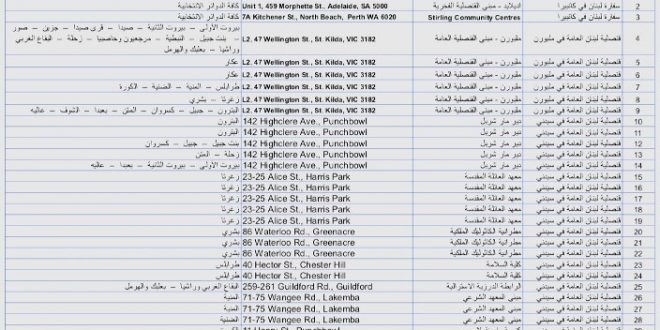 2 سفارة لبنان في كانبيرا اديلايد - مبنى القنصلية الفخرية Unit 1, 459 Morphette St., Adelaide, SA 5000 كافة الدوائر الانتخابية
3 سفارة لبنان في كانبيرا Stirling Community Centres 7A Kitchener St., North Beach, Perth WA 6020 كافة الدوائر الانتخابية
4 قنصلية لبنان العامة في ملبورن ملبورن - مبنى القنصلية العامة L2, 47 Wellington St., St. Kilda, VIC 3182 بيروت الأولى – بيروت الثانية – صيدا – جزين – صور – بنت جبيل – النبطية – مرجعيون وحاصبيا – زحلة – البقاع الغربي وراشيا – بعلبك والهرمل
5 قنصلية لبنان العامة في ملبورن ملبورن - مبنى القنصلية العامة L2, 47 Wellington St., St. Kilda, VIC 3182 عكار
6 قنصلية لبنان العامة في ملبورن ملبورن - مبنى القنصلية العامة L2, 47 Wellington St., St. Kilda, VIC 3182 عكار
7 قنصلية لبنان العامة في ملبورن ملبورن - مبنى القنصلية العامة L2, 47 Wellington St., St. Kilda, VIC 3182 طرابلس – المنية – الضنية – الكورة
8 قنصلية لبنان العامة في ملبورن ملبورن - مبنى القنصلية العامة L2, 47 Wellington St., St. Kilda, VIC 3182 زغرتا – بشري
9 قنصلية لبنان العامة في ملبورن ملبورن - مبنى القنصلية العامة L2, 47 Wellington St., St. Kilda, VIC 3182 البترون – جبيل – كسروان – المتن – بعبدا – الشوف – عاليه
10 قنصلية لبنان العامة في سيدني دير مار شربل 142 Highclere Ave., Punchbowl البترون
11 قنصلية لبنان العامة في سيدني دير مار شربل 142 Highclere Ave., Punchbowl البترون
12 قنصلية لبنان العامة في سيدني دير مار شربل 142 Highclere Ave., Punchbowl بنت جبيل – جبيل – كسروان
13 قنصلية لبنان العامة في سيدني دير مار شربل 142 Highclere Ave., Punchbowl زحلة – المتن
14 قنصلية لبنان العامة في سيدني دير مار شربل 142 Highclere Ave., Punchbowl بيروت الأولى – بيروت الثانية – بعبدا – عاليه
15 قنصلية لبنان العامة في سيدني معهد العائلة المقدسة 23-25 Alice St., Harris Park زغرتا
16 قنصلية لبنان العامة في سيدني معهد العائلة المقدسة 23-25 Alice St., Harris Park زغرتا
17 قنصلية لبنان العامة في سيدني معهد العائلة المقدسة 23-25 Alice St., Harris Park زغرتا
18 قنصلية لبنان العامة في سيدني معهد العائلة المقدسة 23-25 Alice St., Harris Park زغرتا
19 قنصلية لبنان العامة في سيدني معهد العائلة المقدسة 23-25 Alice St., Harris Park زغرتا
20 قنصلية لبنان العامة في سيدني مطرانية الكاثوليك الملكية 86 Waterloo Rd., Greenacre زغرتا
21 قنصلية لبنان العامة في سيدني مطرانية الكاثوليك الملكية 86 Waterloo Rd., Greenacre بشري
22 قنصلية لبنان العامة في سيدني مطرانية الكاثوليك الملكية 86 Waterloo Rd., Greenacre بشري
23 قنصلية لبنان العامة في سيدني كلية السلامة 40 Hector St., Chester Hill طرابلس
24 قنصلية لبنان العامة في سيدني كلية السلامة 40 Hector St., Chester Hill طرابلس
25 قنصلية لبنان العامة في سيدني الرابطة الدرزية الاسترالية 259-261 Guildford Rd., Guildford البقاع الغربي وراشيا – بعلبك والهرمل
26 قنصلية لبنان العامة في سيدني مبنى المعهد الشرعي 71-75 Wangee Rd., Lakemba المنية
27 قنصلية لبنان العامة في سيدني مبنى المعهد الشرعي 71-75 Wangee Rd., Lakemba المنية
28 قنصلية لبنان العامة في سيدني مبنى المعهد الشرعي 71-75 Wangee Rd., Lakemba